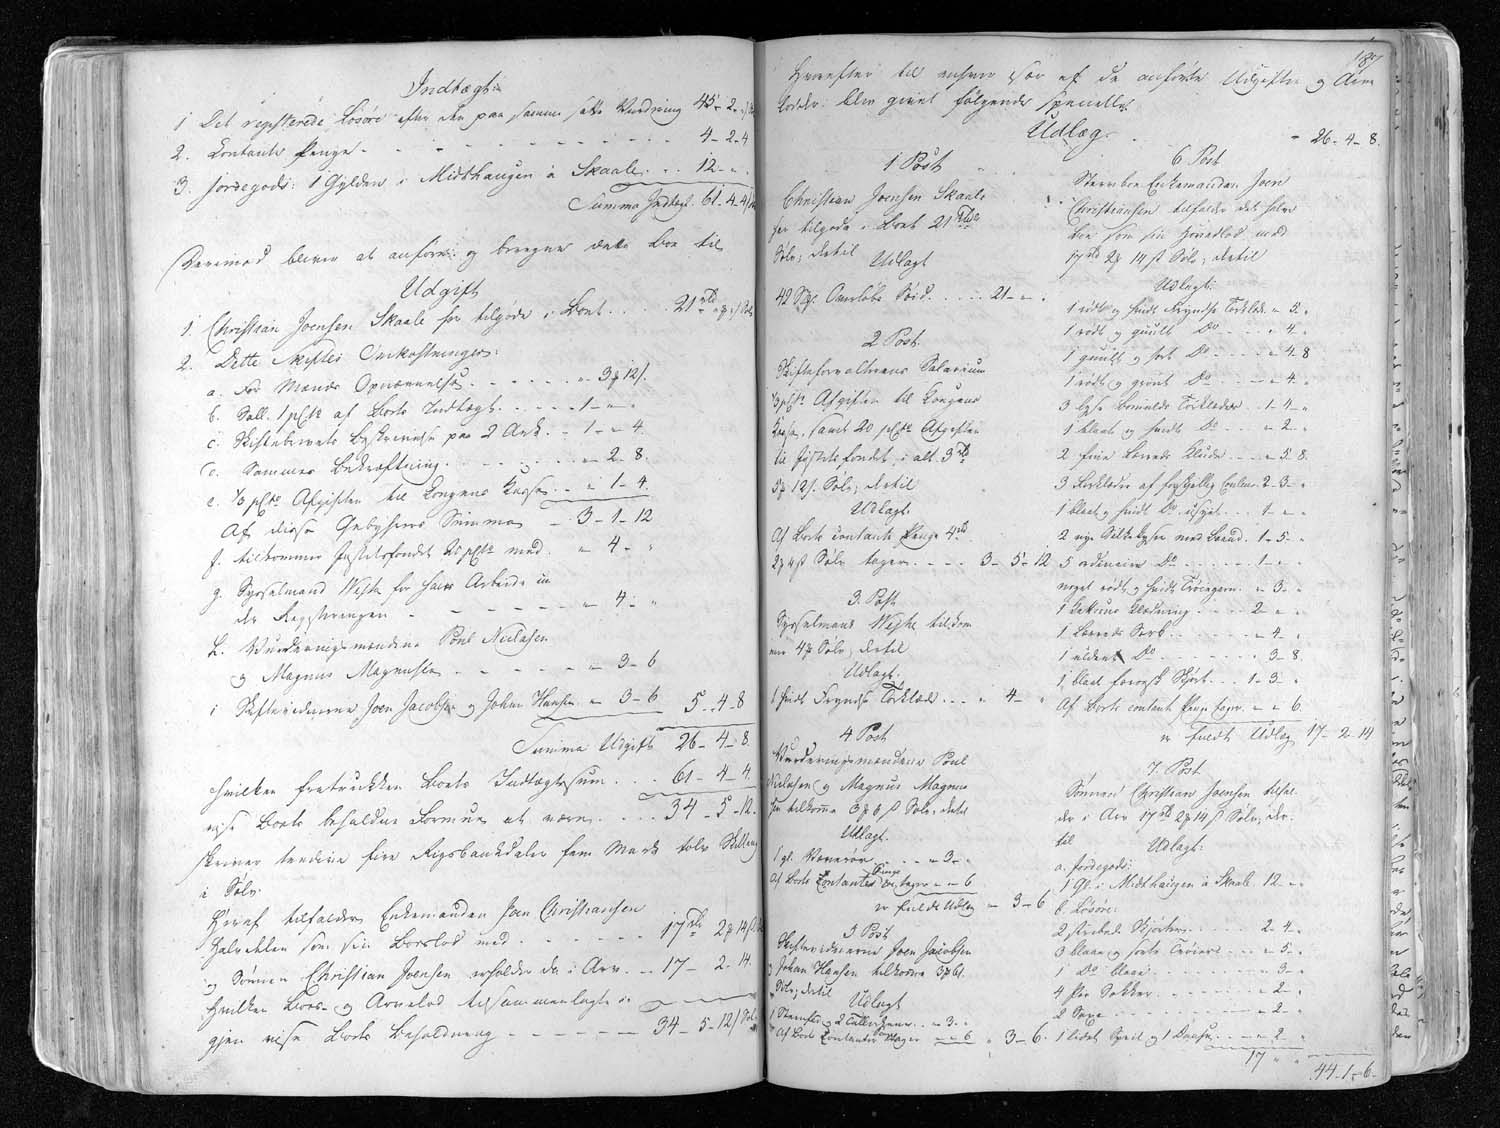 Indtægt:
1 Det registerede Løsøre efter den paa samme satte Vurdering 45-2-
2. Contante Penge - - - 4-2-4
3. Jordegods: 1 Gylden i Midthaugen à Skaale . . 12 - "
Summa Indtægt 61-4-4
Derimod bliver at anføre og beregne dette Boe til
Udgift
1. Christian Joensen Skaale for tilgode i Boet . . . . 21 rd
2. Dette Skiftes Omkostninger:
a. For Mænds Opnævnelse . . . . . " 3 12
b. Sall. 1 pCto af Boets Indtægt . . . . 1 - " - "
c. Skiftebrevets Beskrivelse paa 2 Ark . . 1 - " - 4
d. Sammes Bekræftning . . . . . " - 2 - 8.
e. ½ pCto Afgiften til Kongens Kasse . . " 1 - 4.
Af disse Gebyhrers Summa - 3-1-12
f. tilkommer Justitsfondet 20 pCto med . " 4 - "
g. Sysselmand Wejhe for hans Arbeide un
der Registreringen - - - - " 4 - "
h. Vurderingsmændene Poul Niclasen
og Magnus Magnusen - - - - " 3-6
i Skiftevidnerne Joen Jacobsen og Johan Hansen " 3-6 5-4-8
Summa Udgift 26-4-8.
hvilken fratrukken Boets Indtægtssum . . . 61-4-4.
vise Boets beholdne Formue at være . . . 34-5-12.
skriver tredive fire Rigsbankdaler fem Mark tolv Skilling
i Sølv.
Heraf tilfalder Enkemanden Joen Christiansen
Halvdelen som sin Boeslod med . . . 17 rd 2 14
og Sønnen Christian Joensen erholder da i Arv . . 17-2-14.
Hvilken Boes- og Arvelod tilsammenlagte i-
gjen vise Boets Beholdning - - - - 34-5-12
187
Hvorefter til enhver især af de anførte Udgifter og Arve
lodder blev givet følgende specielle
Udlæg. " 26-4-8.
1 Post
Christian Joensen Skaale
for tilgode i Boet 21 Rd
Sølv; dertil
Udlagt
42 Spe. Omløbs Sølv . . . . 21 - " "
2 Post.
Skifteforvalterens Salarium
½ pCto Afgiften til Kongens
Kasse, samt 20 pCto Afgiften
til Justitsfondet, i alt 3 rd
5 12 Sølv; dertil
Udlagt.
Af Boets contante Penge 4 rd
2 4 Sølv tages . . . . 3-5-12
3. Post
Sysselmand Wejhe tilkom
mer 4 Sølv; dertil
Udlagt.
1 hvidt Fryndse Tørklæde . . . " 4 - "
4 Post
Vurderingsmændene Poul
Niclasen og Magnus Magnu
sen tilkomme 3 6 Sølv; dertil
Udlagt.
1 gl. . . . " 3 - "
Af Boets Contante Penge tages " - 6
er fuldt Udlæg " 3-6
5 Post
Skiftevidnerne Joen Jacobsen
og Johan Hansen tilkomme 3 6
Sølv; dertil
Udlagt
1 og 2 Tallerkener . . " 3 - "
Af Boets Contante Penge tages " - 6 " 3-6.
6 Post
Stervboe Enkemanden Joen
Christiansen tilfalder det halve
boe som sin Hovedlod med
17 rd 2 14 Sølv; dertil
Udlagt:
1 rødt og hvidt Fryndse Tørklæde " 5 "
1 rødt og guult Do . . . " 4 "
1 guult og sort Do . . . . " 4-8
1 rødt og grønt Do . . . " 4 "
3 lyse Bomulds Tørklæder . . 1-4 "
1 blaat og hvidt Do . . . " 2 "
2 fine Lærreds Klude . . . " 5-8.
3 Tørklæder af forskjellig Couleur 2-3 "
1 blaat og hvidt Do . . 1 - " "
2 nye Silkelyser med Baand . 1-5 "
5 ordinaire Do . . . . 1 - " "
noget rødt og hvidt . . " 3 "
1 Klædning . . . 2 - " "
1. Lærreds Særk . . . . " 4 "
1 ulden Do . . . . . 3-8.
1 blaat Skjørt . . . 1-3 "
Af Boets contant Penge tages . " " 6.
er fuldt Udlæg 17-2-14
7. Post
Sønnen Christian Joensen tilfal
der i Arv 17 rd 2 14 Sølv; der
til
Udlagt:
a. Jordegods:
1 Gl. i Midthaugen à Skaale 12 " "
b. Løsøre:
2 stribede Skjorter . . . 2-4 "
3 blaae og sorte Trøier . . " 5 "
1 Do blaae . . . . . 3 "
4 Par Sokker . . . . . " 2 "
2 Saxe . . . . . . . " 2 "
1 lidet Speil og 1 Daase . . . " 2 "
17 " " 44-1-6.